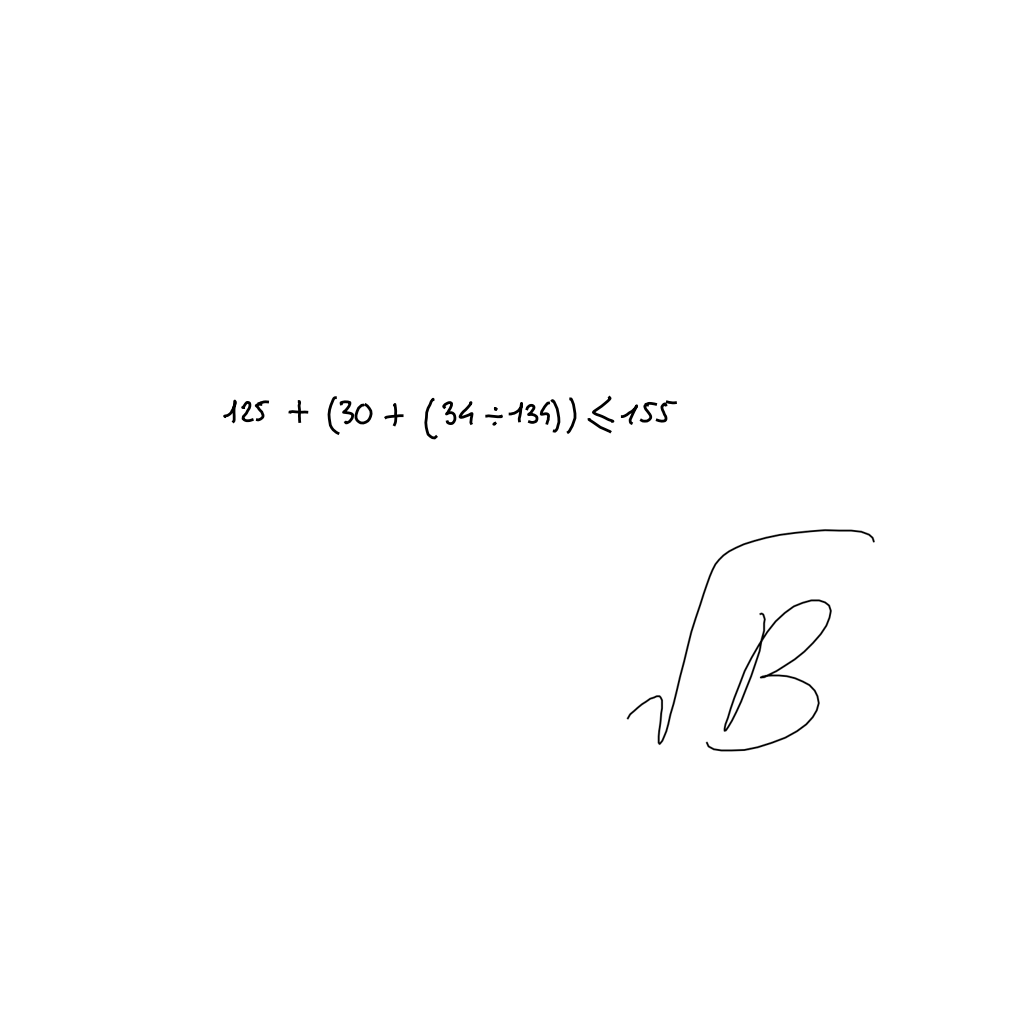 125 + (30 + (34 ÷ 134)) ≤ 155
√B